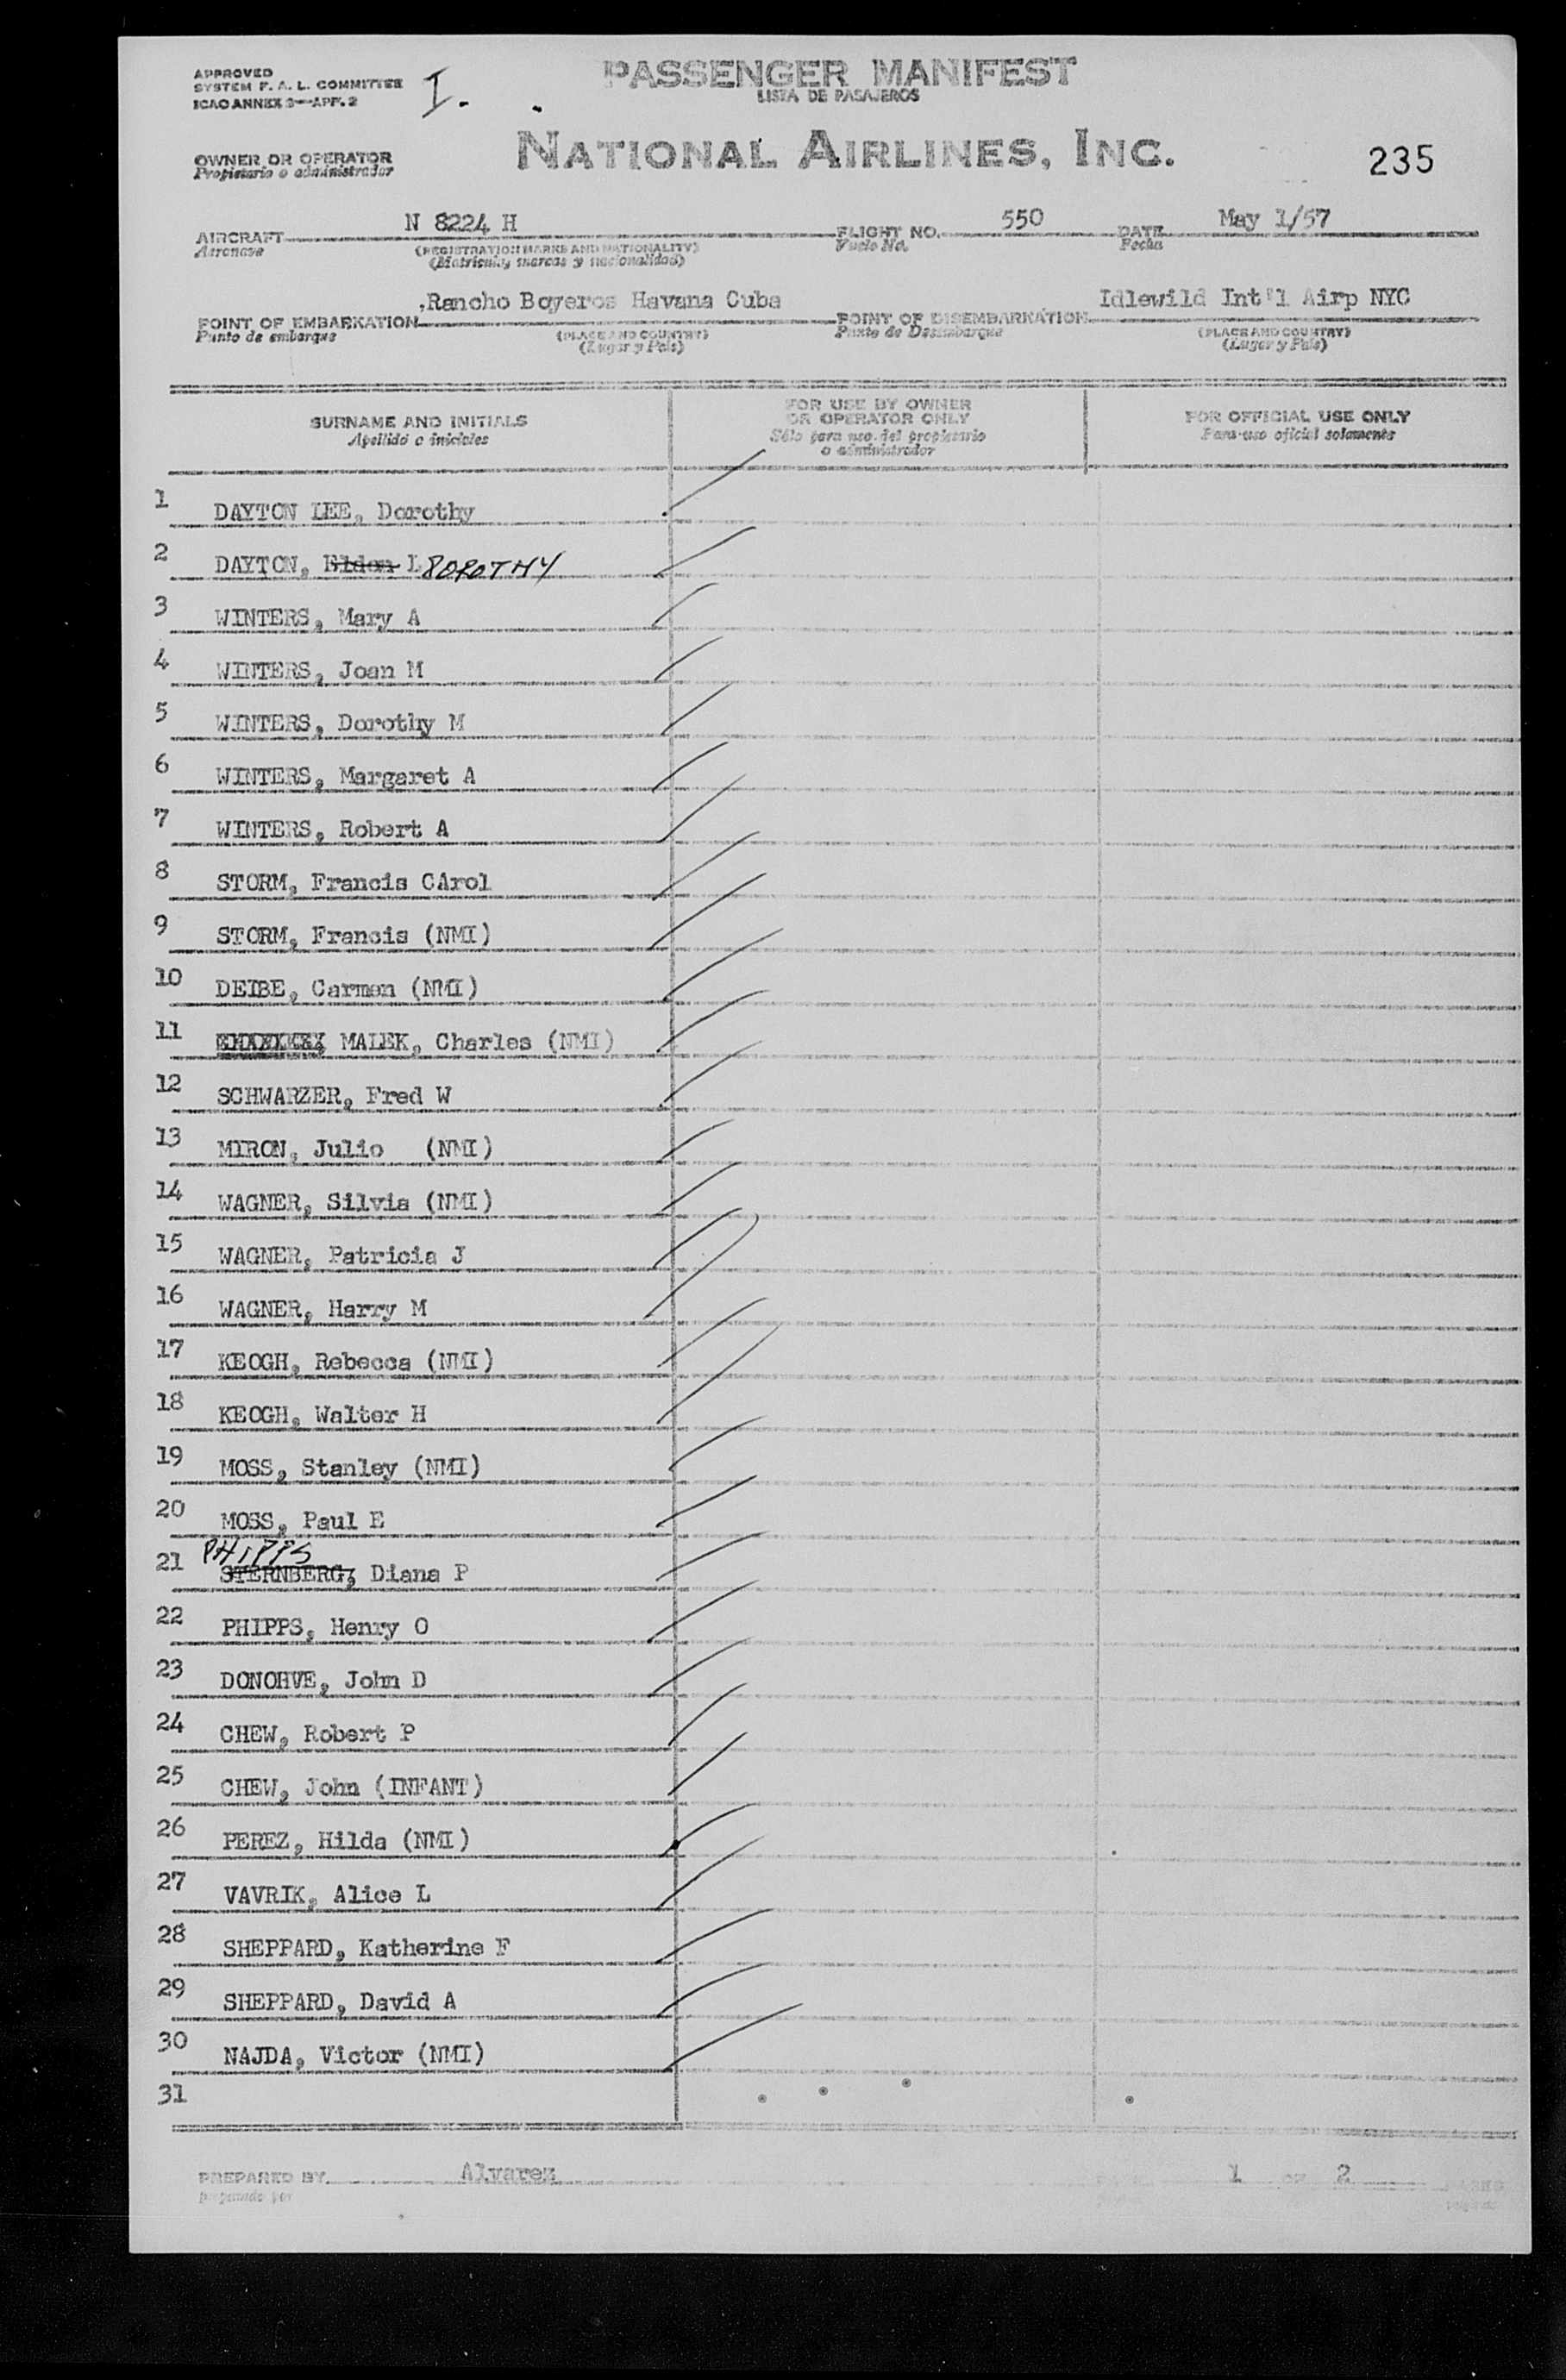 APPROVED
SYSTEM F. A. L. COMMITTEE
ICAO ANNEX 9—APP. 2
I.
PASSENGER MANIFEST
LISTA DE PASAJEROS
OWNER OR OPERATOR
Propietario o administrador
NATIONAL AIRLINES, INC.
235
AIRCRAFT N 8224 H FLIGHT NO. 550 DATE May 1/57
Aeronave (REGISTRATION MARKS AND NATIONALITY) Vuelo No. Fecha
(Matricula, marcas y nacionalidad)
POINT OF EMBARKATION Rancho Boyeros Havana Cuba POINT OF DISEMBARKATION Idlewild Int'l Airp NYC
Punto de embarque (PLACE AND COUNTRY) Punto de Desembarque (PLACE AND COUNTRY)
(Lugar y País) (Lugar y País)
SURNAME AND INITIALS
Apellido o iniciales
FOR USE BY OWNER
OR OPERATOR ONLY
Sólo para uso del propietario
o administrador
FOR OFFICIAL USE ONLY
Para uso oficial solamente
1 DAYTON LEE, Dorothy
2 DAYTON, Eldon L DOROTHY
3 WINTERS, Mary A
4 WINTERS, Joan M
5 WINTERS, Dorothy M
6 WINTERS, Margaret A
7 WINTERS, Robert A
8 STORM, Francis CArol
9 STORM, Francis (NMI)
10 DEIBE, Carmen (NMI)
11 MALEK, Charles (NMI)
12 SCHWARZER, Fred W
13 MIRON, Julio (NMI)
14 WAGNER, Silvia (NMI)
15 WAGNER, Patricia J
16 WAGNER, Harry M
17 KEOGH, Rebecca (NMI)
18 KEOGH, Walter H
19 MOSS, Stanley (NMI)
20 MOSS, Paul E
PHIPPS
21 STERNBERG, Diana P
22 PHIPPS, Henry O
23 DONOHVE, John D
24 CHEW, Robert P
25 CHEW, John (INFANT)
26 PEREZ, Hilda (NMI)
27 VAVRIK, Alice L
28 SHEPPARD, Katherine F
29 SHEPPARD, David A
30 NAJDA, Victor (NMI)
31
PREPARED BY Alvarez 1 OF 2
preparado por